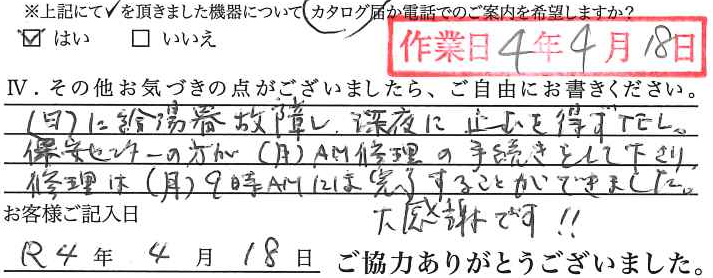 ※上記にて✓を頂きました機器について カタログ届か電話でのご案内を希望しますか?
☑ はい □ いいえ
作業日 4年4月18日
Ⅳ．その他お気づきの点がございましたら、ご自由にお書きください。
(日)に給湯器故障し、深夜に止むを得ずTEL。
保安センターの方が(月)AM修理の手続きをして下さり、
修理は(月)9時AMには完了することができました。
お客様ご記入日
大感謝です!!
R4年 4月18日 ご協力ありがとうございました。